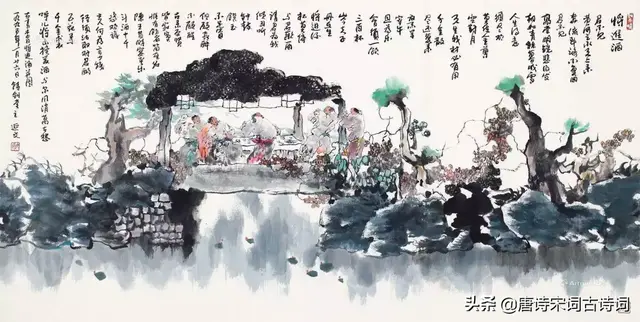 将進酒
君不見
黄河之水天上来
奔流到海不復回
君不見
高堂明鏡悲白髮
朝如青絲暮成雪
人生得意
須尽歡
莫使金樽
空對月
天生我材必有用
千金散
尽還復来
烹羊
宰牛
且為樂
會須一飲
三百杯
岑夫子
丹丘生
将進酒
杯莫停
與君歌一曲
請君為我
側耳聽
鐘鼓
饌玉
不足貴
但願長醉
不願醒
古来聖賢
皆寂寞
惟有飲者
留其名
陳王昔時宴平樂
斗酒十千
恣歡謔
主人何為言少錢
徑須沽取對君酌
五花馬
千金裘
呼兒将出換美酒與尔同消萬古愁
头条 @唐诗宋词古诗词